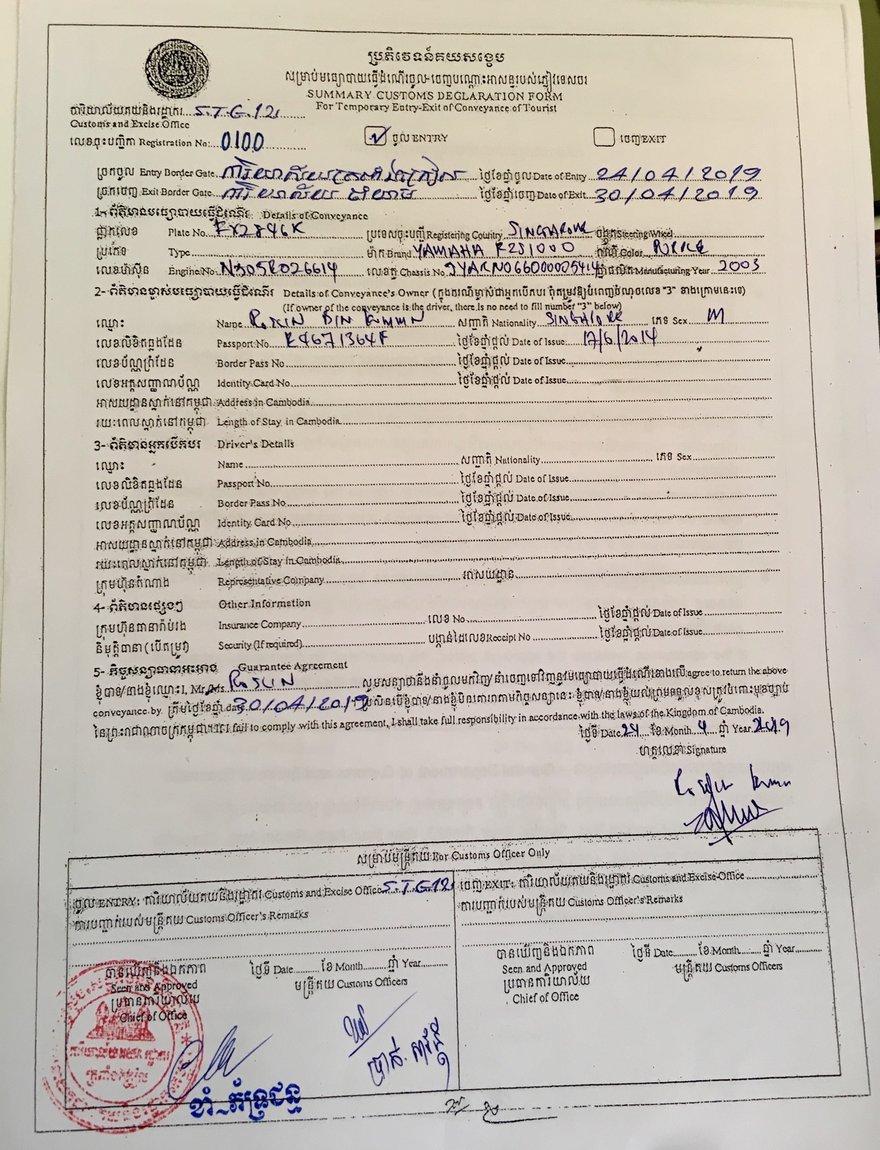 ប្រតិវេទន៍គយសង្ខេប
សម្រាប់មធ្យោបាយធ្វើដំណើរចូល-ចេញបណ្តោះអាសន្នរបស់ភ្ញៀវទេសចរ
SUMMARY CUSTOMS DECLARATION FORM
For Temporary Entry-Exit of Conveyance of Tourist
ការិយាល័យគយនិងរដ្ឋាករ S.T.G.12
Customs and Excise Office
លេខចុះបញ្ជិកា Registration No: 0100 ចូល ENTRY ចេញ EXIT
ច្រកចូល Entry Border Gate ថ្ងៃខែឆ្នាំចូល Date of Entry 24/04/2019
ច្រកចេញ Exit Border Gate ថ្ងៃខែឆ្នាំចេញ Date of Exit 30/04/2019
1- ព័ត៌មានមធ្យោបាយធ្វើដំណើរ Details of Conveyance
ផ្លាកលេខ Plate No. FX2846K ប្រទេសចុះបញ្ជី Registering Country SINGAPORE ចង្កូត Steering Wheel
ប្រភេទ Type ម៉ាក Brand YAMAHA ព៌ណ Color
លេខម៉ាស៊ីន Engine No. N305R026614 លេខតួ Chassis No. ឆ្នាំផលិត Manufacturing Year 2003
2- ព័ត៌មានម្ចាស់មធ្យោបាយធ្វើដំណើរ Details of Conveyance's Owner (ក្នុងករណីម្ចាស់ជាអ្នកបើកបរ ពុំតម្រូវឱ្យបំពេញចំណុចលេខ "3" ខាងក្រោមនេះទេ)
(If owner of the conveyance is the driver, there is no need to fill number "3" below)
ឈ្មោះ Name BIN សញ្ជាតិ Nationality SINGAPORE ភេទ Sex M
លេខលិខិតឆ្លងដែន Passport No. E4671364F ថ្ងៃខែឆ្នាំផ្តល់ Date of Issue 17/6/2014
លេខប័ណ្ណព្រំដែន Border Pass No ថ្ងៃខែឆ្នាំផ្តល់ Date of Issue
លេខអត្តសញ្ញាណប័ណ្ណ Identity Card No ថ្ងៃខែឆ្នាំផ្តល់ Date of Issue
អាសយដ្ឋានស្នាក់នៅកម្ពុជា Address in Cambodia
រយៈពេលស្នាក់នៅកម្ពុជា Length of Stay in Cambodia
3- ព័ត៌មានអ្នកបើកបរ Driver's Details
ឈ្មោះ Name សញ្ជាតិ Nationality ភេទ Sex
លេខលិខិតឆ្លងដែន Passport No. ថ្ងៃខែឆ្នាំផ្តល់ Date of Issue
លេខប័ណ្ណព្រំដែន Border Pass No ថ្ងៃខែឆ្នាំផ្តល់ Date of Issue
លេខអត្តសញ្ញាណប័ណ្ណ Identity Card No ថ្ងៃខែឆ្នាំផ្តល់ Date of Issue
អាសយដ្ឋានស្នាក់នៅកម្ពុជា Address in Cambodia
រយៈពេលស្នាក់នៅកម្ពុជា Length of Stay in Cambodia
ក្រុមហ៊ុនតំណាង Representative Company អាសយដ្ឋាន
4- ព័ត៌មានផ្សេងៗ Other Information
ក្រុមហ៊ុនធានារ៉ាប់រង Insurance Company លេខ No ថ្ងៃខែឆ្នាំផ្តល់ Date of Issue
និមុត្តិធានា (បើតម្រូវ) Security (If required) បង្កាន់ដៃលេខ Receipt No ថ្ងៃខែឆ្នាំផ្តល់ Date of Issue
5- កិច្ចសន្យាធានាអះអាង Guarantee Agreement
ខ្ញុំបាទ/នាងខ្ញុំឈ្មោះ I, Mr./Ms. ROSLIN សូមសន្យាថានឹងនាំចូលមកវិញ/នាំចេញទៅវិញនូវមធ្យោបាយធ្វើដំណើរខាងលើ agree to return the above
conveyance by ត្រឹមថ្ងៃខែឆ្នាំ date 30/04/2019 បើសិនបើខ្ញុំបាទ/នាងខ្ញុំមិនគោរពតាមកិច្ចសន្យានេះ ខ្ញុំបាទ/នាងខ្ញុំយល់ព្រមទទួលខុសត្រូវចំពោះមុខច្បាប់
នៃព្រះរាជាណាចក្រកម្ពុជា If I fail to comply with this agreement, I shall take full responsibility in accordance with the laws of the Kingdom of Cambodia.
ថ្ងៃទី Date 24 ខែ Month 4 ឆ្នាំ Year 2019
ហត្ថលេខា Signature
សម្រាប់មន្ត្រីគយ For Customs Officer Only
ចូល ENTRY: ការិយាល័យគយនិងរដ្ឋាករ Customs and Excise Office S.T.G.12 ចេញ EXIT: ការិយាល័យគយនិងរដ្ឋាករ Customs and Excise Office
ការបញ្ជាក់របស់មន្ត្រីគយ Customs Officer's Remarks ការបញ្ជាក់របស់មន្ត្រីគយ Customs Officer's Remarks
បានឃើញនិងឯកភាព ថ្ងៃទី Date ខែ Month ឆ្នាំ Year បានឃើញនិងឯកភាព ថ្ងៃទី Date ខែ Month ឆ្នាំ Year
Seen and Approved មន្ត្រីគយ Customs Officers Seen and Approved មន្ត្រីគយ Customs Officers
ប្រធានការិយាល័យ ប្រធានការិយាល័យ
Chief of Office Chief of Office